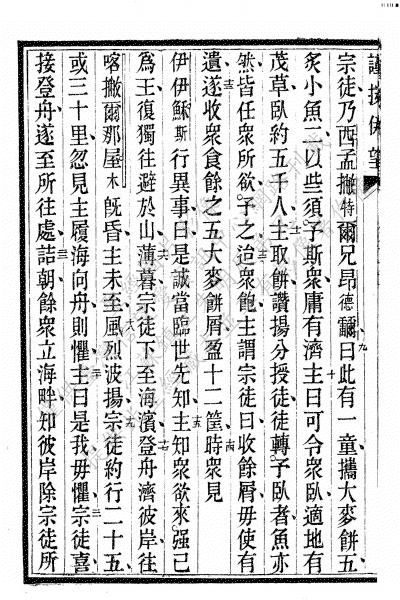 謹按伊望
宗徒乃西孟撇特爾兄昂德爾曰此有一童攜大麥餅五
炙小魚二以些須予斯衆庸有濟主曰可令衆臥適地有
茂草臥約五千人主取餅讚揚分授徒徒轉予臥者魚亦
然皆任衆所欲予之迨衆飽主謂宗徒曰收餘屑毋使有
遺遂收衆食餘之五大麥餅屑盈十二筐時衆見
伊伊穌斯行異事曰是誠當臨世先知主知衆欲來强己
爲王復獨往避於山薄暮宗徒下至海濱登舟濟彼岸往
喀撇爾那屋木旣昏主未至風烈波揚宗徒約行二十五
或三十里忽見主履海向舟則懼主曰是我毋懼宗徒喜
接登舟遂至所往處詰朝餘衆立海畔知彼岸除宗徒所